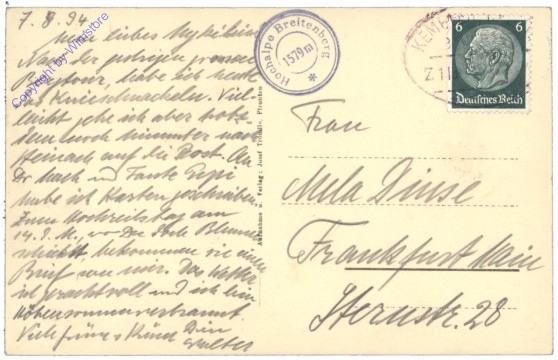 7. 8. 94.
Mein liebes
Nach der gestrigen grossen
Bergtour, habe ich heute
das Knieschnackeln. Viel-
leicht gehe ich aber trotz
dem noch hinunter nach
Steinach auf die Post. An
Dr. Mack und Tante Pepi
habe ich Karten geschrieben
Zum Hochzeitstag am
14. 8. wo Du Blumen
schickst, bekommen sie einen
Brief von mir. Das Wetter
ist prachtvoll und ich bin
höhensonnenverbrannt.
Viele Grüsse u Küsse Dein
Walter
Copyright by Wirtlstore
Hochalpe Breitenberg
1579 m
Aufnahme u. Verlag: Josef Pfronten
KEMP
Z. 11
6 6
Deutsches Reich
Frau
Mela Dinse
Frankfurt Main
Sternstr. 28